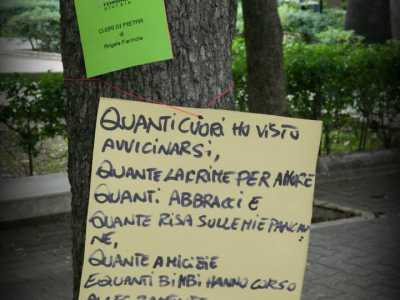 CUORI DI PIETRA
di
QUANTI CUORI HO VISTO
AVVICINARSI,
QUANTE LACRIME PER AMORE
QUANTI ABBRACCI E
QUANTE RISA SULLE MIE PANCHI
NE,
QUANTE AMICIZIE
E QUANTI BIMBI HANNO CORSO